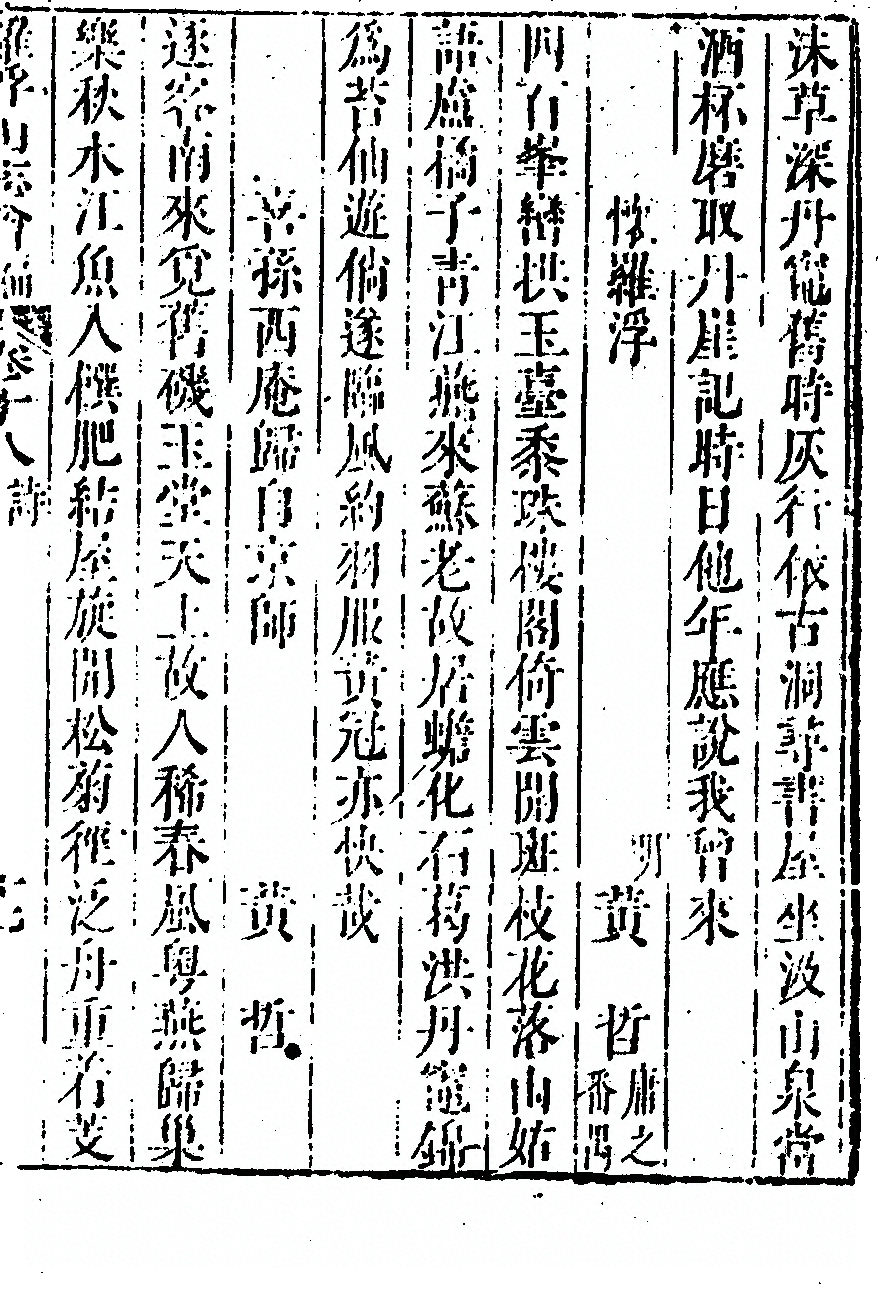 洙草深丹竈舊時灰行依古洞尋書屋坐汲山泉當
酒杯磨取丹崖記時日他年應說我曾來
懷羅浮 明 黃哲 庸之 番禺
四百峯巒拱玉臺黍珠樓閣倚雲開班枝花落山姑
語盧橘子青江燕來蘇老故居蟾化石葛洪丹竈
為苔仙遊倘遂臨風約羽服黃冠亦快哉
喜孫西庵歸自京師 黃哲
逐客南來覓舊磯玉堂天上故人稀春風粤燕歸巢
樂秋水江魚入饌肥結屋旋開松菊徑泛舟重若芰
羅浮山志會編 卷十八 詩